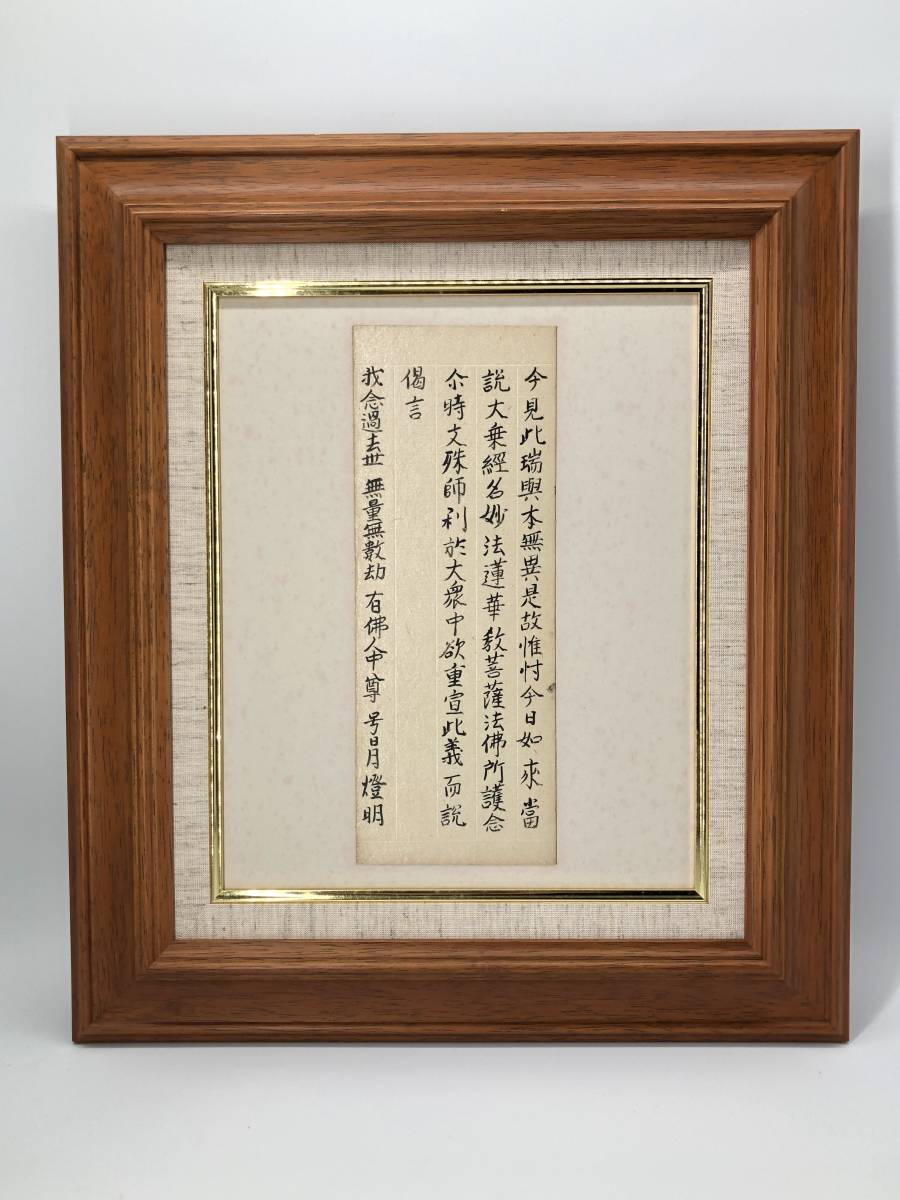 今見此瑞與本無異是故惟忖今日如来當
説大乗經名妙法蓮華教菩薩法佛所護念
尒時文殊師利於大衆中欲重宣此義而説
偈言
我念過去世 無量無數劫 有佛人中尊 号日月燈明